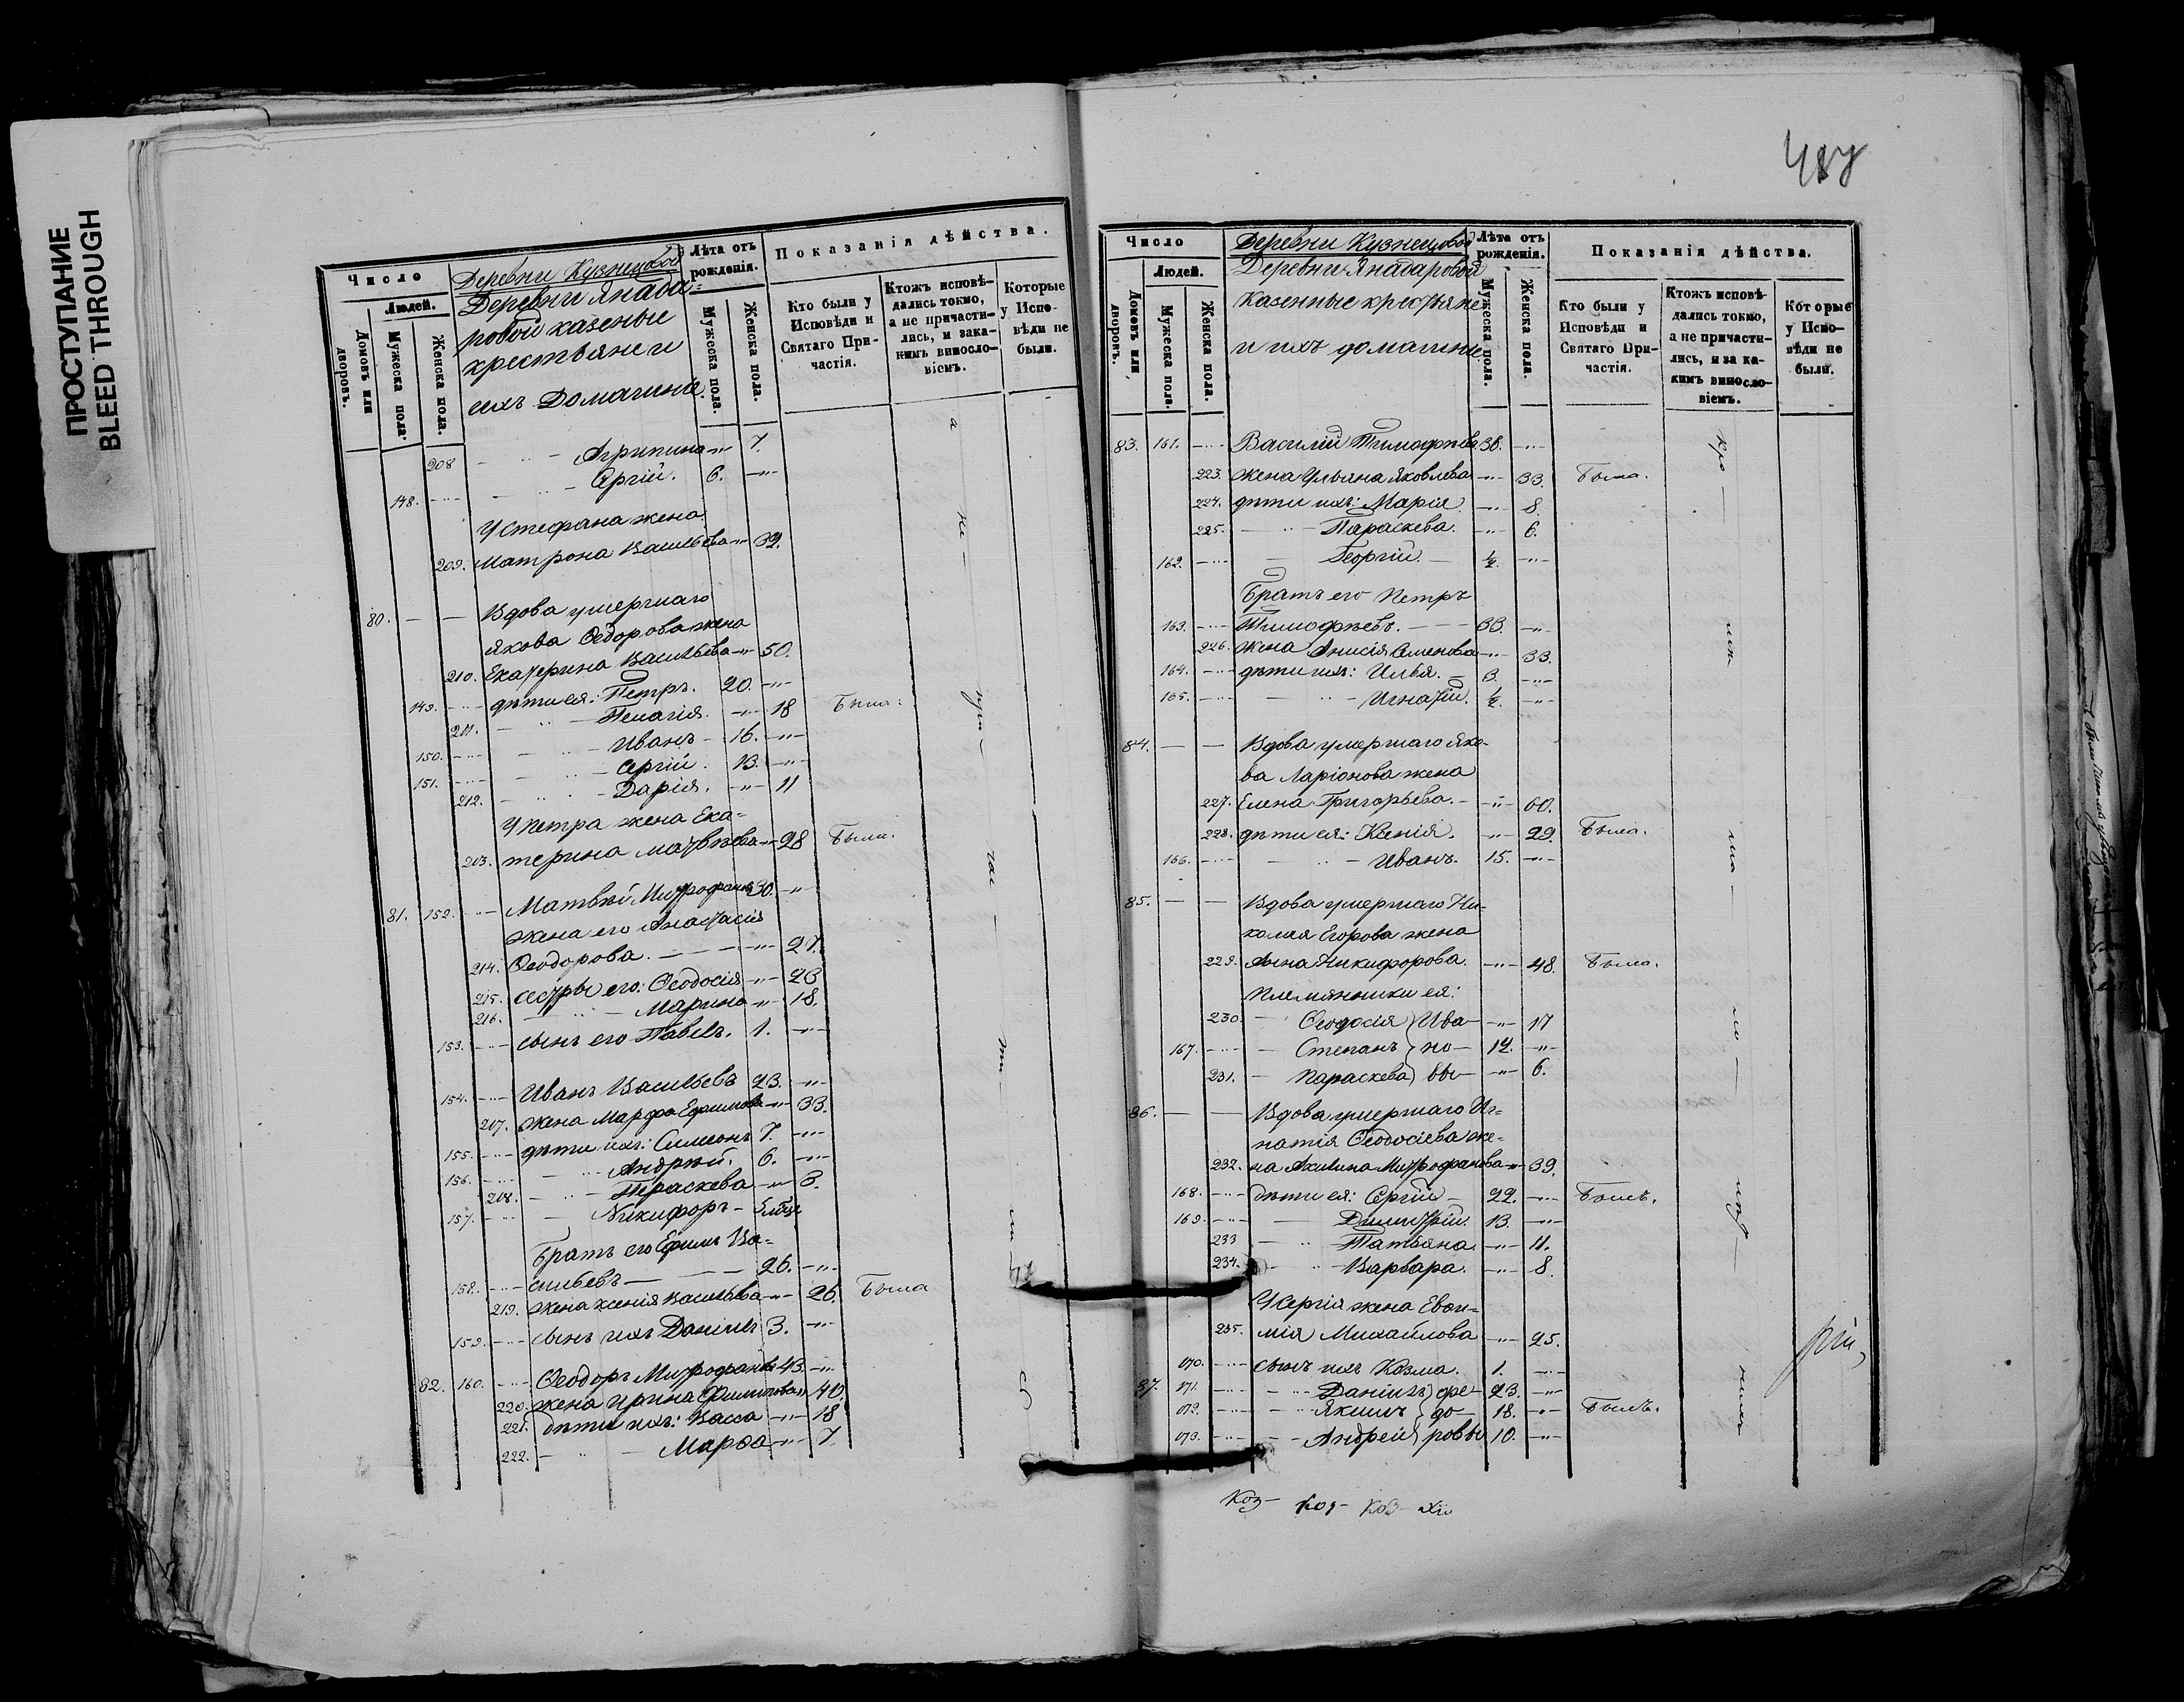 ПРОСТУПАНИЕ
BLEED THROUGH
Число
Людей.
Домовъ или дворовъ.
Мужеска пола.
Женска пола.
Деревни Кузнецовой
Деревни Янада-
ровой казеные
крестьяне и
ихъ Домашние
Лѣта отъ рожденія.
Мужеска пола.
Женска пола.
Показанія дѣйства.
Кто были у Исповѣди и Святаго Причастія.
Ктожъ исповѣдались токмо, а не причастились, и закакимъ винословіемъ.
Которые у Исповѣди не были.
208 Агрипина 7.
148. Сргій. 6.
У Стефана жена
209. Матрона Васильева 32.
80. Вдова умершаго
Якова Ѳедорова жена
210. Екатерина Васильева 50.
149. дѣти ея: Петръ. 20.
211. Пелагія. 18 Была.
150. Иванъ 16.
151. Сергій. 13.
212. Дарія. 11
У Петра жена Ека-
203. терина Матвѣева 28 Была.
81. 152. Матвѣй Митрофановъ 30.
жена его Анастасія
214. Ѳеодорова. 27.
215. сестры его: Ѳеодосія 23
216. Марина 18.
153. сынъ его Павелъ. 1.
154. Иванъ Васильевъ 23.
207. жена Марфа Ефимова 33.
155. дѣти ихъ: Симеонъ 7.
156. Андрѣй. 6.
208. Параскева 3.
157. Никифоръ
Братъ его Ефимъ Ва-
158. сильевъ 26.
219. жена Ксенія Васильева 26. Была
159. сынъ ихъ Даніилъ 3.
82. 160. Ѳеодоръ Митрофановъ 43.
220. жена Ирина Филипова 40.
221. дѣти ихъ: Васса 18
222. Марѳа 7.
487
Число
Людей.
Домовъ или дворовъ.
Мужеска пола.
Женска пола.
Деревни Кузнецовой
Деревни Янадаровой
казенные крестьяне
и ихъ домашние
Лѣта отъ рожденія.
Мужеска пола.
Женска пола.
Показанія дѣйства.
Кто были у Исповѣди и Святаго Причастія.
Ктожъ исповѣдались токмо, а не причастились, и за какимъ винословіемъ.
Которые у Исповѣди не были.
83. 161. Василій Тимофѣевъ 38.
223. жена Ульяна Яковлева 33. Была.
224. дѣти ихъ: Марія. 8.
225. Параскева. 6.
162. Георгій. ½.
Братъ его Петръ
163. Тимофѣевъ. 33.
226. жена Анисія Семенова 33.
164. дѣти ихъ: Илья. 3.
165. Игнатій. ½.
84. Вдова умершаго Яко-
ва Ларіонова жена
227. Елена Григорьева. 60.
228. дѣти ея: Ксенія. 29. Была.
166. Иванъ. 15.
85. Вдова умершаго Ни-
колая Егорова жена
229. Анна Никифорова. 48. Была.
Племянники ея:
230. Ѳеодосія } Ива- 17
167. Степанъ } но- 12.
231. Параскева } вы 6.
86. Вдова умершаго Иг-
натія Ѳеодосіева же-
232. на Акилина Митрофанова 39.
168. дѣти ея: Сергій 22. Былъ.
169. Димитрій. 13.
233 Татьяна. 11.
234. Варвара. 8.
У Сергія жена Евѳи-
235. мія Михайлова 25.
170. сынъ ихъ Козма. 1.
87. 171. Даніилъ } Ѳе- 23.
172. Якимъ } до- 18. Былъ.
173. Андрей } ровы 10.
Коз- Коз- Коз-